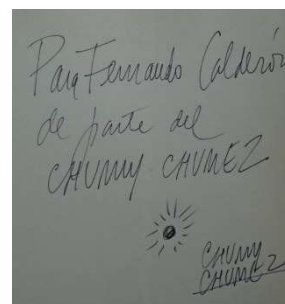 Para Fernando Calderón
de parte del
CHUMY CHUMEZ
CHUMY
CHUMEZ